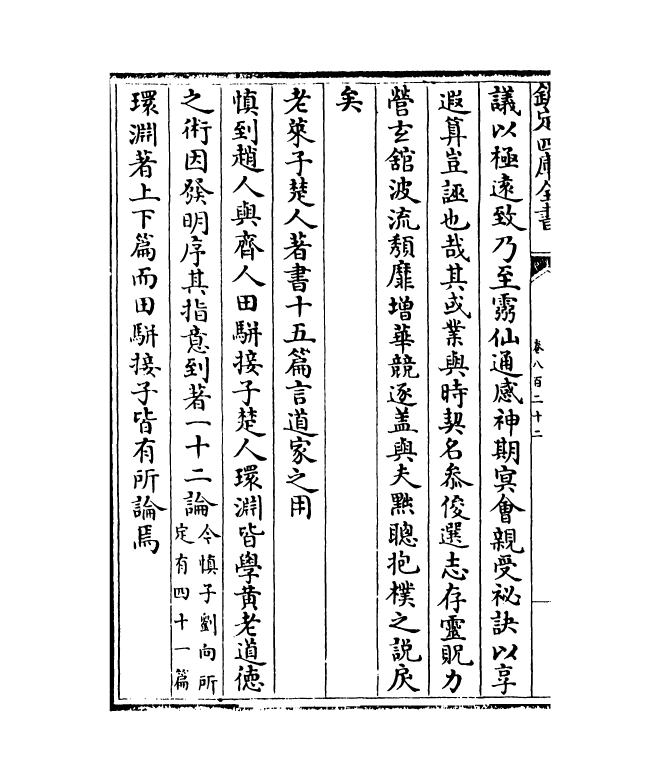 欽定四庫全書
卷八百二十二
議以極遠致乃至靈仙通感神期冥會親受祕訣以享
遐算豈誣也哉其或業與時契名叅俊選志存靈貺力
營玄舘波流頽靡增華競逐盖與夫黜聰抱樸之説戾
矣
老萊子楚人著書十五篇言道家之用
慎到趙人與齊人田駢接子楚人環淵皆學黄老道徳
之術因發明序其指意到著一十二論今慎子劉向所定有四十一篇
環淵著上下篇而田駢接子皆有所論焉